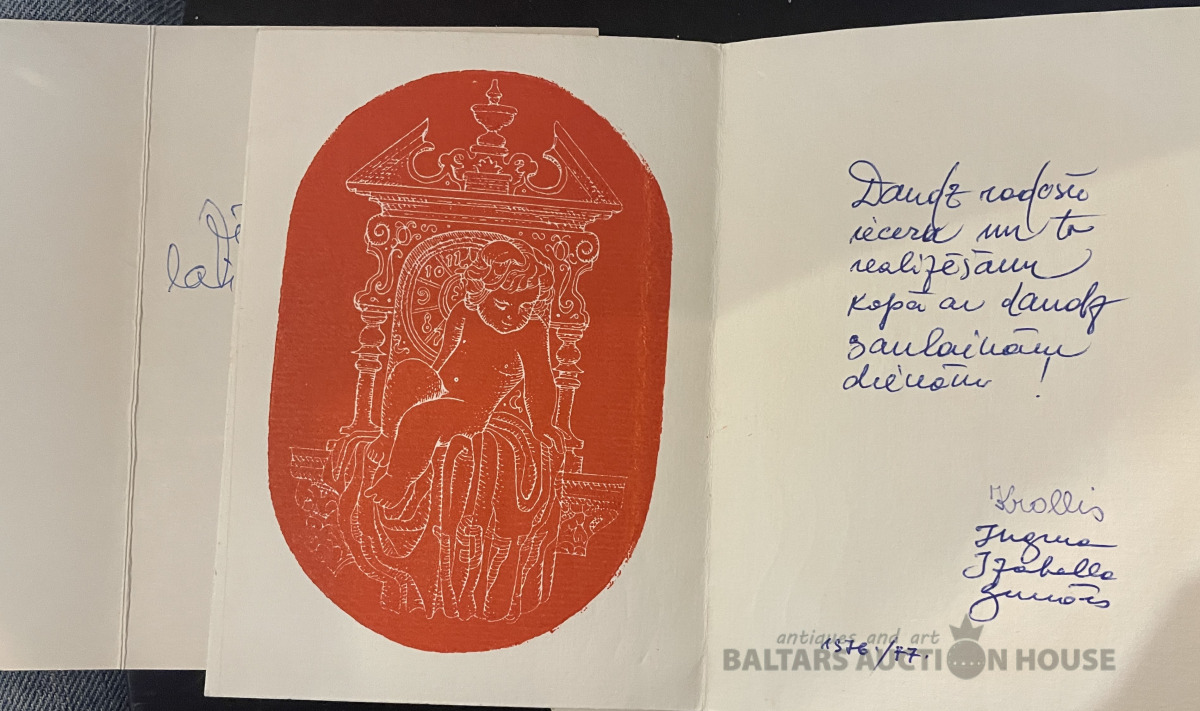 lab
Daudz radošu
ieceru un to
realizējumu
kopā ar daudz
saulainām
dienām !
Krollis
Ingrīna
Izabella
Gunārs
1976./77.
antiques and art
BALTARS AUCTION HOUSE
10 11 12
9
8